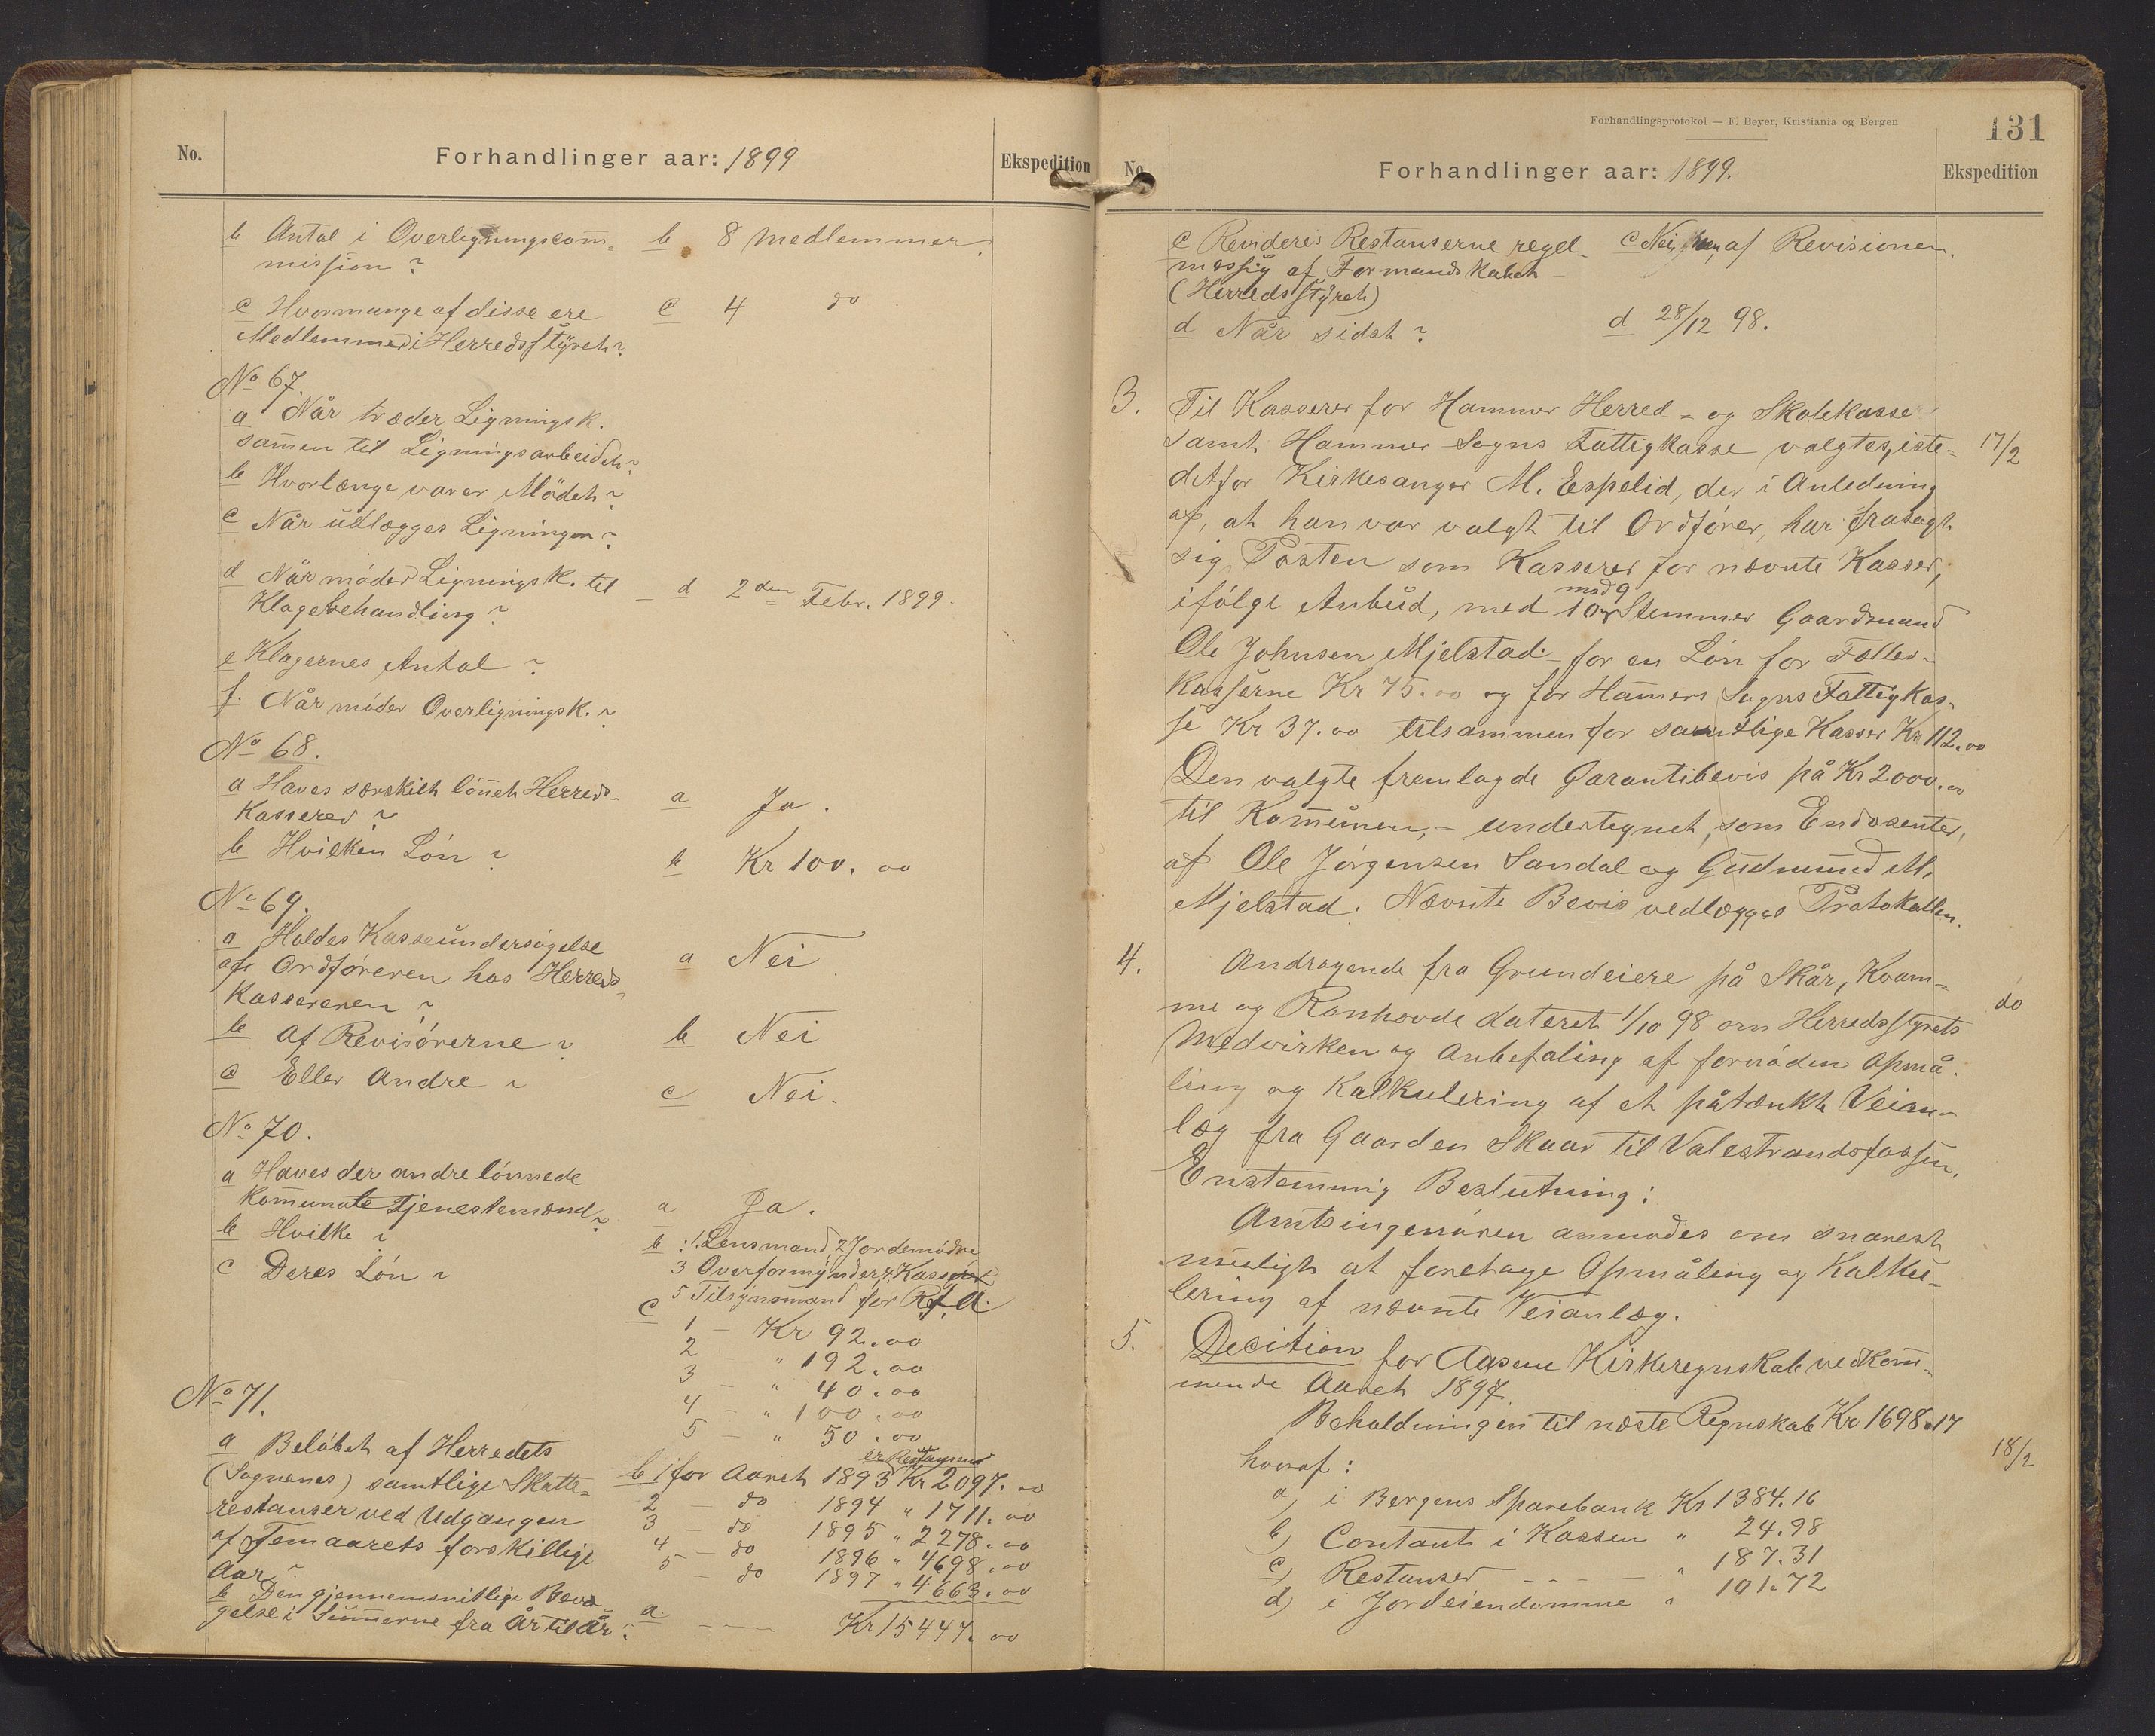 No.
Forhandlinger aar: 1899
Ekspedition
b Antal i Overligningscom̅-
mission?
b 8 medlemmer.
c Hvormange af disse ere
Medlemmer i Herredsstyret?
c 4 do
No 67.
a Når træder Ligningsk.
sam̅en til Ligningsarbeidet?
b Hvorlænge varer Mödet?
c Når udlægges Ligningen?
d Når möder Ligningsk. til
Klagebehandling?
d 2den Febr. 1899.
e Klagernes Antal?
f. Når möder Overligningsk.?
No 68.
a Haves særskilt lön̅et Herreds-
Kasserer?
a Ja.
b Hvilken Lön?
b Kr 100.00
No 69.
a Holdes Kasseundersögelse
af Ordföreren hos Herreds-
Kassereren?
a Nei
b af Revisörerne?
b Nei
c Eller Andre?
c Nei.
No 70.
a Haves der andre lönnede
Kom̅unale Tjenestemænd?
a Ja.
b Hvilke?
b: 1. Lensmand, 2 Jordemödre
3 Overformynder, 4. Kasserer
5 Tilsynsmand for Rf. A.
c Deres Lön?
c
1 – Kr 92.00
2 – " 192.00
3 – " 40.00
4 – " 100.00
5 – " 50.00
No 71.
a Belöbet af Herredets
(Sognenes) samtlige Skatte-
restanser ved Udgangen
af Femaarets forskillige
Aar?
b Den gjennemsnitlige Bevæ-
gelse i Sum̅erne fra År til År?
er Restanserne
b 1 for Aaret 1893 Kr 2097.00
2 – do 1894 " 1711.00
3 – do 1895 " 2278.00
4 – do 1896 " 4698.00
5 – do 1897 " 4663.00
a – Kr 15447.00
Forhandlingsprotokol — F. Beyer, Kristiania og Bergen
131
No.
Forhandlinger aar: 1899.
Ekspedition
c Revideres Restanserne regel-
mæssig af Formandskabet
(Herredsstyret)
c Nei, af Revisionen.
d Når sidst?
d 28/12 98.
3. Til Kasserer for Hammer Herred- og Skolekasse
samt Hammer Sogns Fattigkasse valgtes, iste- 17/2
detfor Kirkesanger M. Espelid, der i Anledning
af, at han var valgt til Ordförer, har frasagt
sig Posten som Kasserer for nævnte Kasser,
ifölge Anbud, med 10 mod 9 Stemmer Gaardmand
Ole Johnsen Mjelstad – for en Lön for Fælles-
kasserne Kr 75.00 og for Ham̅ers Sogns Fattigkas-
se Kr 37.00 tilsammen for samtlige Kasser Kr 112.00
Den valgte fremlagde Garantibevis på Kr 2000.00
til Kom̅unen, – undertegnet, som Endosenter,
af Ole Jörgensen Sandal og Gudmund M.
Mjelstad. Nævnte Bevis vedlægges Protokollen.
4. Andragende fra Grundeiere på Skår, Kvam-
me og Ronhovde dateret 1/10 98 om Herredsstyrets do
Medvirken og Anbefaling af fornöden Opmå-
ling og Kalkulering af et påtænkt Veian-
læg fra Gaarden Skaar til Valestrandsfossen.
Enstemmig Beslutning:
Amtsingeniören anmodes om snarest
muligt at foretage Opmåling og Kalku-
lering af nævnte Veianlæg.
5. Decition for Aasene Kirkeregnskab vedkom̅-
mende Aaret 1897.
Beholdningen til næste Regnskab Kr 1698.17
hvoraf: 18/2
a) i Bergens Sparebank Kr 1384.16
b) Contant i Kassen " 24.98
c) Restanser – – – – " 187.31
d) i Jordeiendomme " 101.72